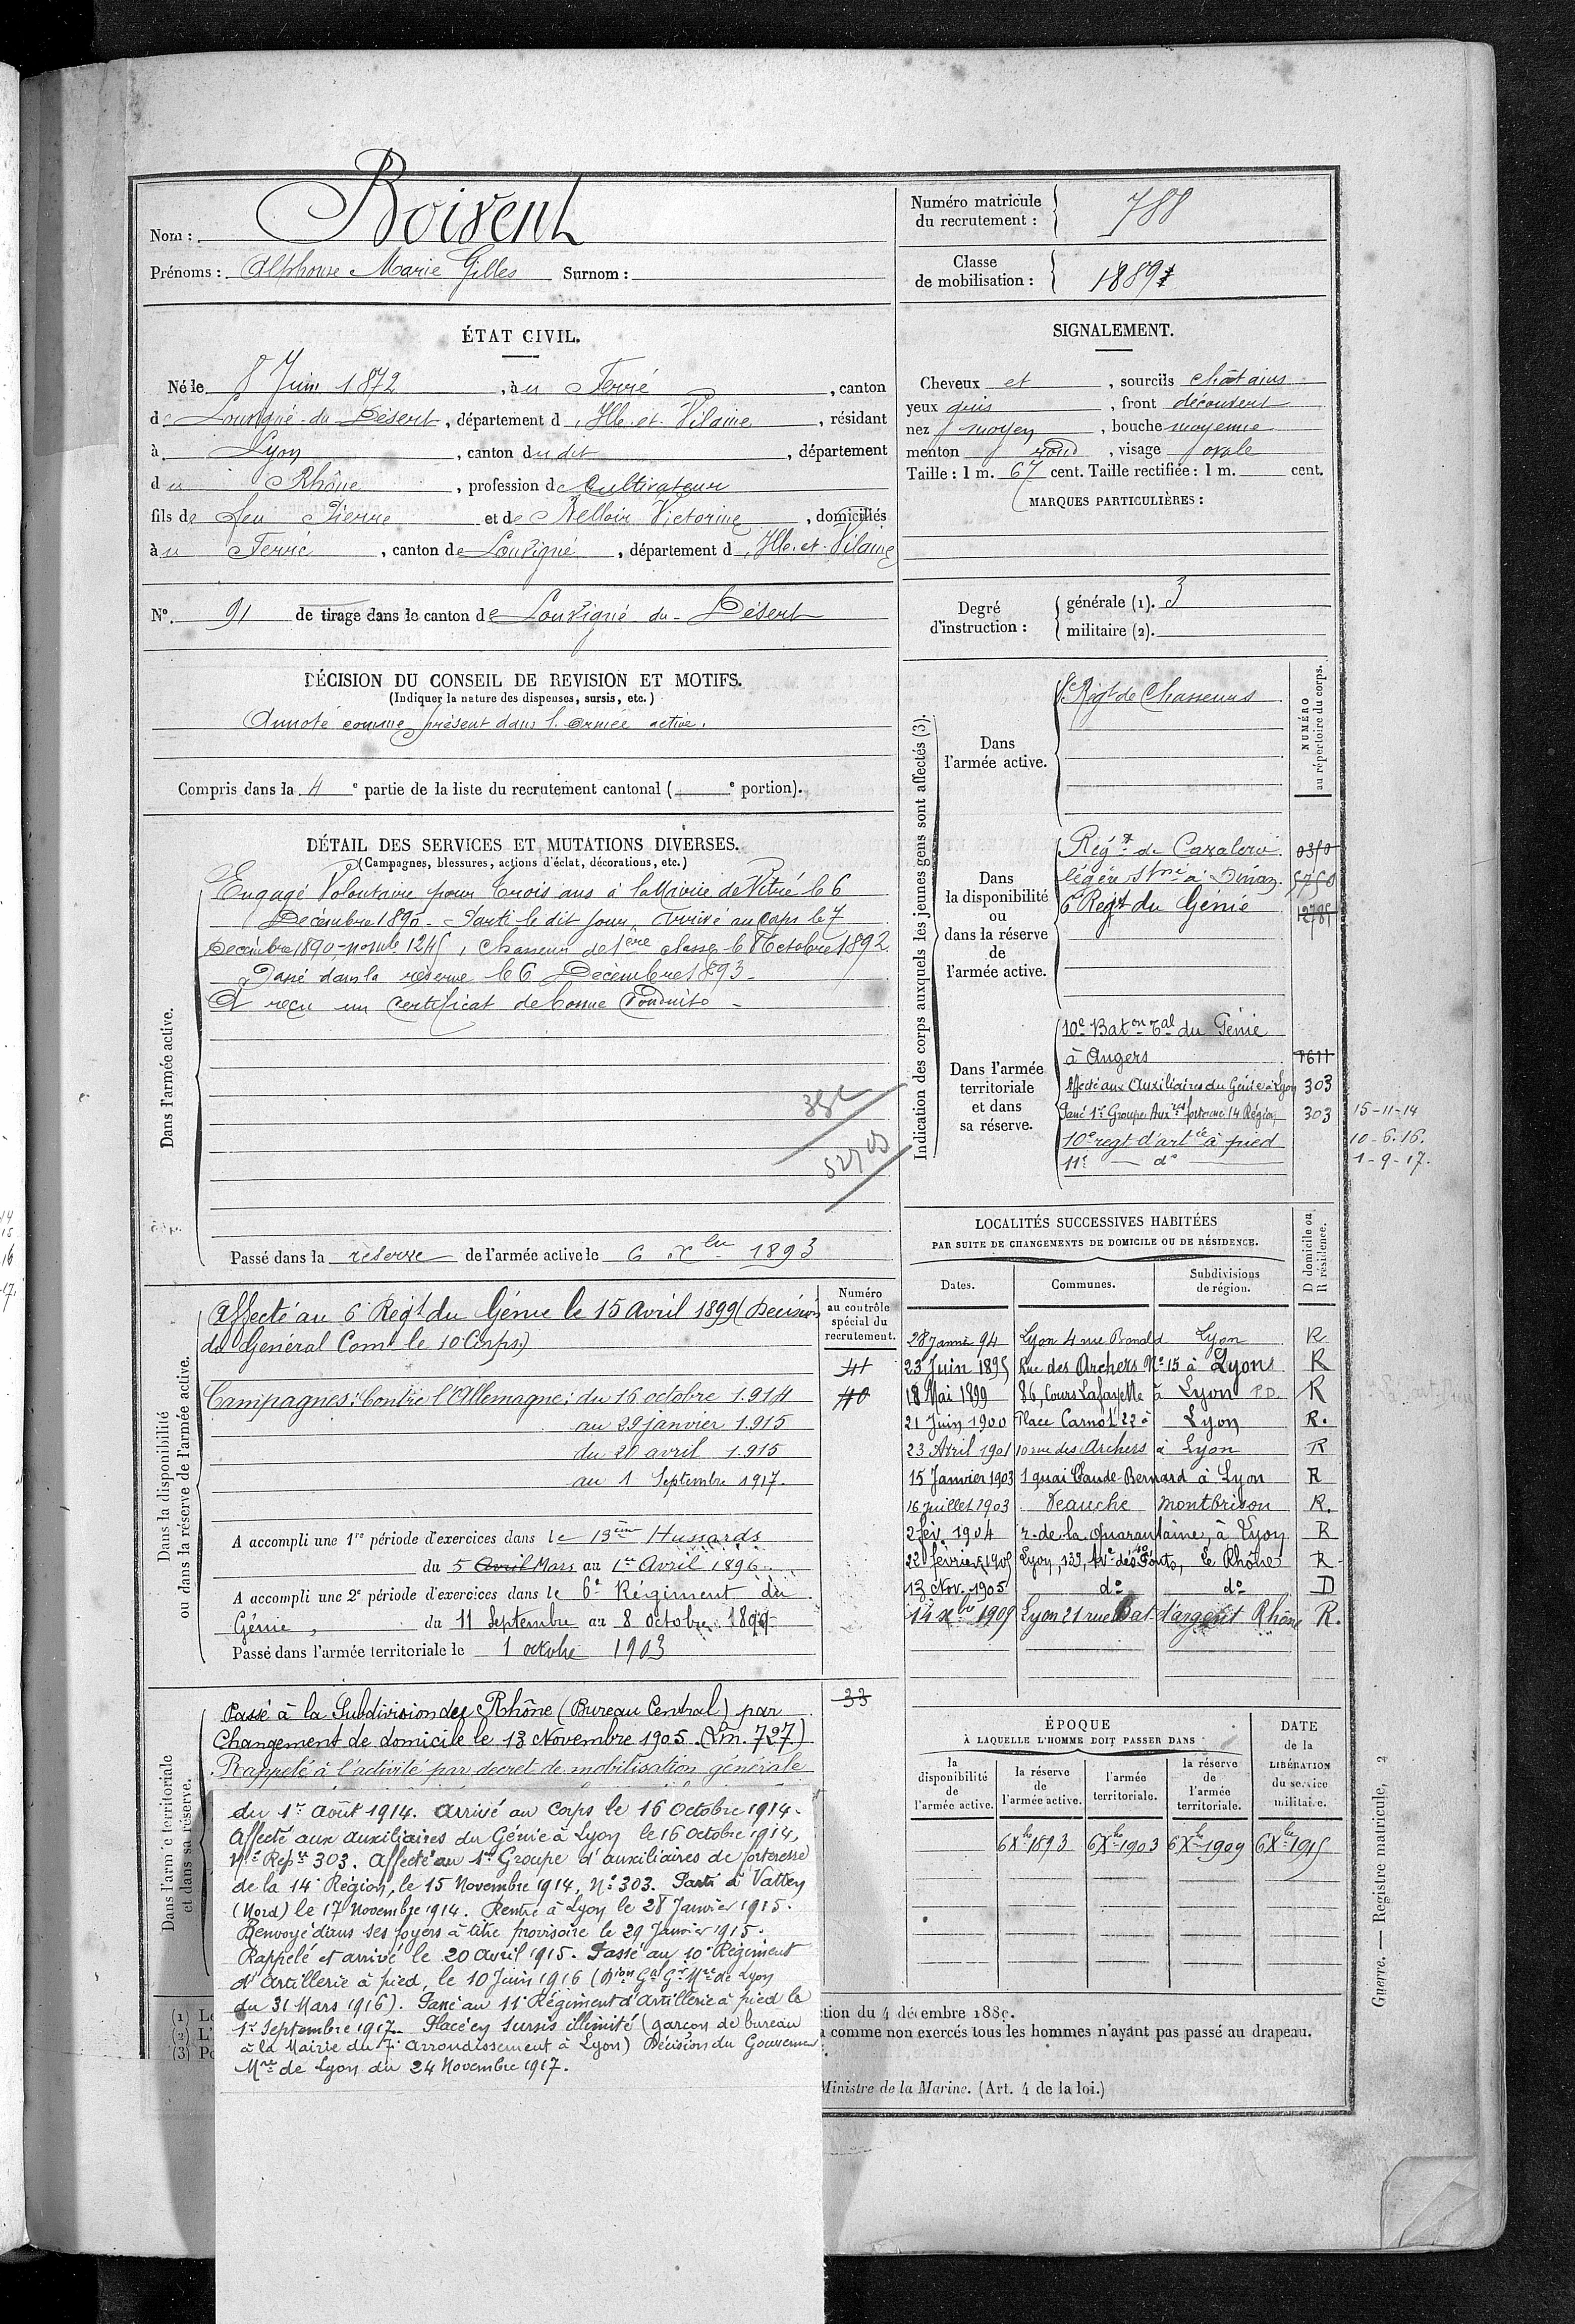 Nom : Boivent
Prénoms : Alphonse Marie Gilles Surnom :
Numéro matricule du recrutement : 788
Classe de mobilisation : 1889
ÉTAT CIVIL.
Né le 8 Juin 1872, à u Ferré, canton
de Louvigné-du-Désert, département d'Ille-et-Vilaine, résidant
à Lyon, canton du dit, département
du Rhône, profession de Cultivateur
fils de feu Pierre et de Victorine, domiciliés
à u Ferré, canton de Louvigné, département d'Ille-et-Vilaine
N° 91 de tirage dans le canton de Louvigné-du-Désert
DÉCISION DU CONSEIL DE REVISION ET MOTIFS.
(Indiquer la nature des dispenses, sursis, etc.)
Annoté comme présent dans l'armée active.
Compris dans la 4e partie de la liste du recrutement cantonal ( e portion).
SIGNALEMENT.
Cheveux et, sourcils châtains
yeux gris, front découvert
nez moyen, bouche moyenne
menton rond, visage ovale
Taille : 1 m. 67 cent. Taille rectifiée : 1 m. cent.
MARQUES PARTICULIÈRES :
Degré d'instruction : générale (1). 3
militaire (2).
DÉTAIL DES SERVICES ET MUTATIONS DIVERSES.
(Campagnes, blessures, actions d'éclat, décorations, etc.)
Dans l'armée active.
Engagé Volontaire pour trois ans à la Mairie de Vitré le 6
Décembre 1890. Parti le dit jour. Arrivé au corps le 7
Décembre 1890, 1245, Chasseur de 1ère classe le 8 Octobre 1892
Passé dans la réserve le 6 Décembre 1893.
A reçu un Certificat de bonne Conduite
Passé dans la réserve de l'armée active le 6 Xbre 1893
Indication des corps auxquels les jeunes gens sont affectés (3).
NUMÉRO au répertoire du corps.
Dans l'armée active.
Régt de Chasseurs
Dans la disponibilité ou dans la réserve de l'armée active.
Régt de Cavalerie
légère à Dinan 5750
6 Regt du Génie
Dans l'armée territoriale et dans sa réserve.
10e Baton Tal du Génie
à Angers
Affecté aux Auxiliaires du Génie à Lyon 303
Passé 1er Groupe Auxres forteresse 14 Région 303 15-11-14
10e regt d'artie à pied 10-6-16.
11e do 1-9-17.
LOCALITÉS SUCCESSIVES HABITÉES
PAR SUITE DE CHANGEMENTS DE DOMICILE OU DE RÉSIDENCE.
Dates. Communes. Subdivisions de région. D domicile ou R résidence.
28 94 Lyon 4 rue Bonald Lyon R
23 Juin 1895 Rue des Archers N° 15 à Lyon R
18 Mai 1899 86, Cours Lafayette à Lyon P.D. R
21 Juin 1900 Place Carnot 22 à Lyon R.
23 Avril 1901 10 rue des Archers à Lyon R
15 Janvier 1903 1 quai Claude-Bernard à Lyon R
16 Juillet 1903 Veauche Montbrison R.
2 fév. 1904 r. de la Quarantaine, à Lyon R
22 février 1905 Lyon, 133, Av. des Ponts, le Rhône R
13 Nov. 1905 do do D
14 Xbre 1905 Lyon 21 rue Bat d'argent Rhône R.
Dans la disponibilité ou dans la réserve de l'armée active.
Numéro au contrôle spécial du recrutement.
Affecté au 6 Régt du Génie le 15 Avril 1899 (Décision
du Général Comt le 10 Corps)
Campagnes : Contre l'Allemagne : du 16 octobre 1.914
au 29 janvier 1.915
du 20 avril 1.915
au 1 Septembre 1917.
A accompli une 1re période d'exercices dans le 13ème Hussards
du 5 Avril Mars au 1er Avril 1896
A accompli une 2e période d'exercices dans le 6e Régiment du
Génie, du 11 Septembre au 8 octobre 1899
Passé dans l'armée territoriale le 1 octobre 1903
Dans l'armée territoriale et dans sa réserve.
33
Passé à la Subdivision du Rhône (Bureau Central) par
Changement de domicile le 13 Novembre 1905. (Lm. 727)
Rappelé à l'activité par décret de mobilisation générale
du 1er Août 1914. Arrivé au Corps le 16 Octobre 1914.
Affecté aux auxiliaires du Génie à Lyon le 16 octobre 1914,
N° Repre 303. Affecté au 1er Groupe d'auxiliaires de forteresse
de la 14e Région, le 15 Novembre 1914, N° 303. Parti à Watten
(Nord) le 17 Novembre 1914. Rentré à Lyon le 28 Janvier 1915.
Renvoyé dans ses foyers à titre provisoire le 29 Janvier 1915.
Rappelé et arrivé le 20 Avril 1915. Passé au 10e Régiment
d'Artillerie à pied, le 10 Juin 1916 (Dion Gal Gr Mre de Lyon
du 31 Mars 1916). Passé au 11e Régiment d'Artillerie à pied le
1er Septembre 1917. Placé en sursis illimité (garçon de bureau
à la Mairie du 7e arrondissement à Lyon) Décision du Gouverneur
Mre de Lyon du 24 Novembre 1917.
ÉPOQUE
À LAQUELLE L'HOMME DOIT PASSER DANS
la disponibilité de l'armée active. la réserve de l'armée active. l'armée territoriale. la réserve de l'armée territoriale. DATE de la LIBÉRATION du service militaire.
6 Xbre 1893 6 Xbre 1903 6 Xbre 1909 6 Xbre 1915
(1) L
(2) L'
(3) Po
ction du 4 décembre 1889.
comme non exercés tous les hommes n'ayant pas passé au drapeau.
Ministre de la Marine. (Art. 4 de la loi.)
Guerre. — Registre matricule, 2